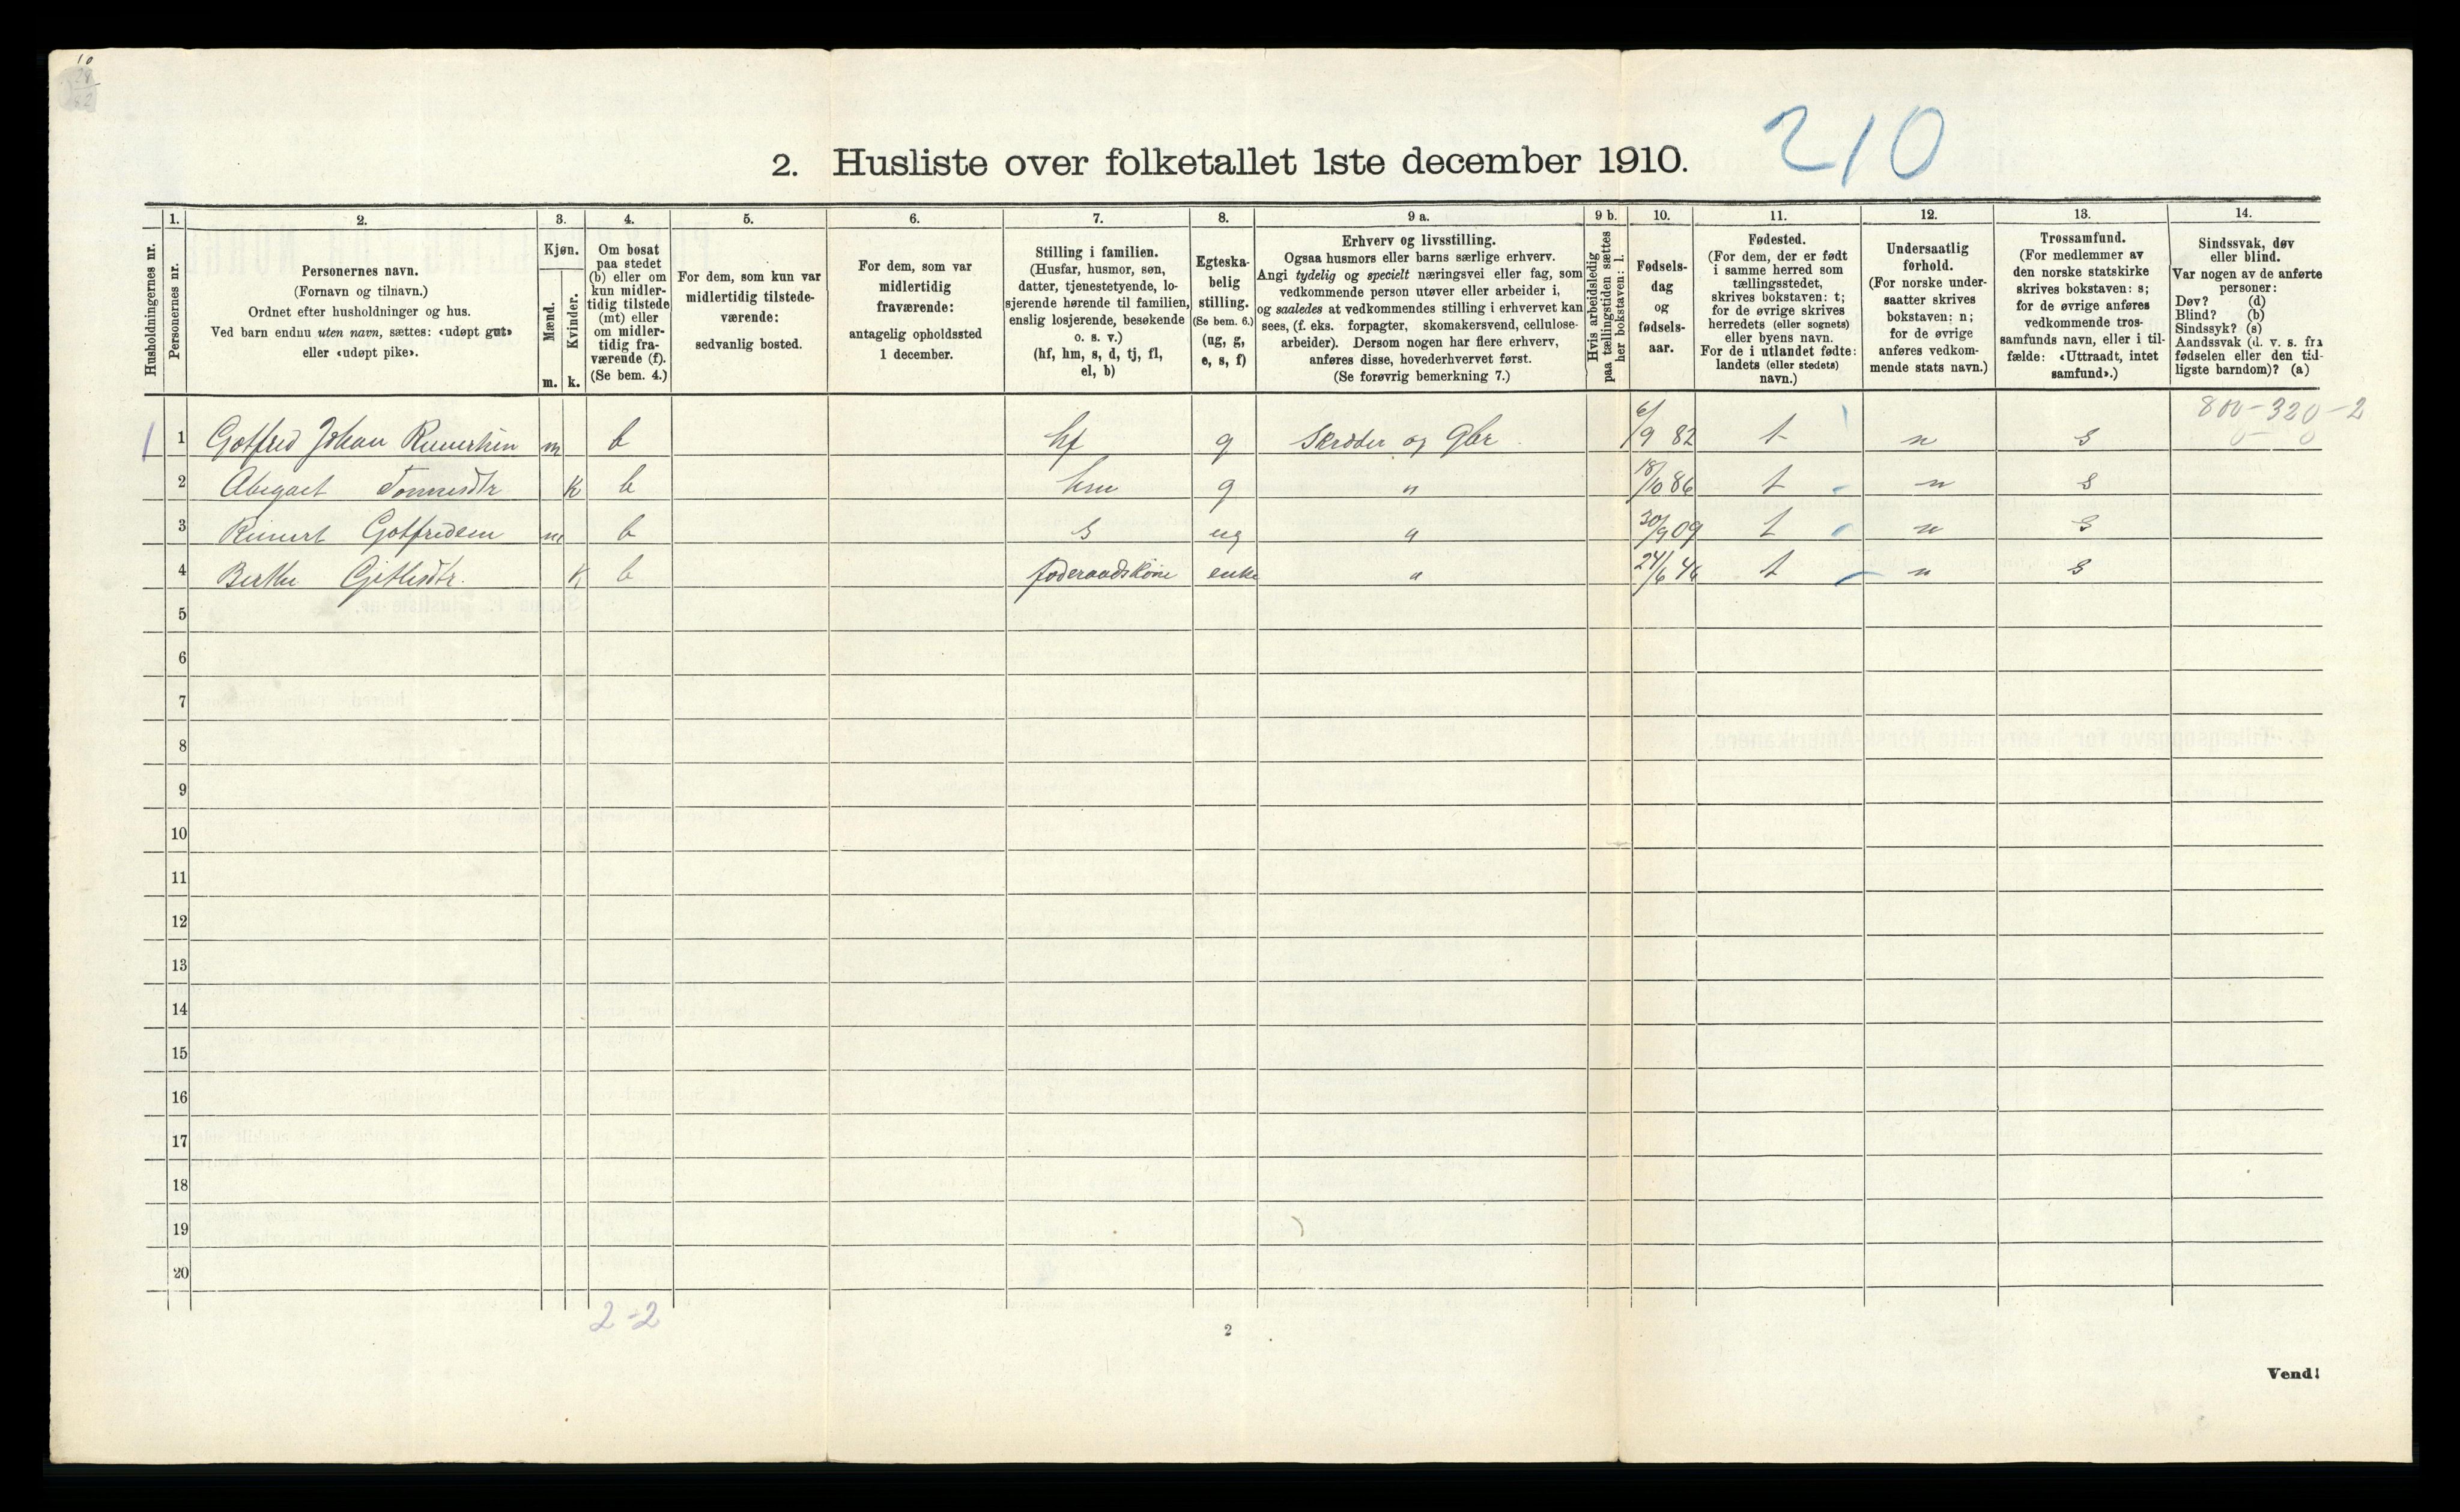 10
210
2. Husliste over folketallet 1ste december 1910.
Husholdningernes nr.
1.
Personernes nr.
2.
Personernes navn.
(Fornavn og tilnavn.)
Ordnet efter husholdninger og hus.
Ved barn endnu uten navn, sættes: «udøpt gut»
eller «udøpt pike».
3.
Kjøn.
Mænd.
Kvinder.
m. k.
4.
Om bosat
paa stedet
(b) eller om
kun midler-
tidig tilstede
(mt) eller
om midler-
tidig fra-
værende (f).
(Se bem. 4.)
5.
For dem, som kun var
midlertidig tilstede-
værende:
sedvanlig bosted.
6.
For dem, som var
midlertidig
fraværende:
antagelig opholdssted
1 december.
7.
Stilling i familien.
(Husfar, husmor, søn,
datter, tjenestetyende, lo-
sjerende hørende til familien,
enslig losjerende, besøkende
o. s. v.)
(hf, hm, s, d, tj, fl,
el, b)
8.
Egteska-
belig
stilling.
(Se bem. 6.)
(ug, g,
e, s, f)
9 a.
Erhverv og livsstilling.
Ogsaa husmors eller barns særlige erhverv.
Angi tydelig og specielt næringsvei eller fag, som
vedkommende person utøver eller arbeider i,
og saaledes at vedkommendes stilling i erhvervet kan
sees, (f. eks. forpagter, skomakersvend, cellulose-
arbeider). Dersom nogen har flere erhverv,
anføres disse, hovederhvervet først.
(Se forøvrig bemerkning 7.)
9 b.
Hvis arbeidsledig
paa tællingstiden sættes
her bokstaven: l.
10.
Fødsels-
dag
og
fødsels-
aar.
11.
Fødested.
(For dem, der er født
i samme herred som
tællingsstedet,
skrives bokstaven: t;
for de øvrige skrives
herredets (eller sognets)
eller byens navn.
For de i utlandet fødte:
landets (eller stedets)
navn.)
12.
Undersaatlig
forhold.
(For norske under-
saatter skrives
bokstaven: n;
for de øvrige
anføres vedkom-
mende stats navn.)
13.
Trossamfund.
(For medlemmer av
den norske statskirke
skrives bokstaven: s;
for de øvrige anføres
vedkommende tros-
samfunds navn, eller i til-
fælde: «Uttraadt, intet
samfund».)
14.
Sindssvak, døv
eller blind.
Var nogen av de anførte
personer:
Døv? (d)
Blind? (b)
Sindssyk? (s)
Aandssvak (d. v. s. fra
fødselen eller den tid-
ligste barndom)? (a)
800-320-2
0 - 0
1 1 Gotfred Johan m b hf g Skræder og Gbr. 6/9 82 t n s
2 Abegael Tønnesdtr k b hm g " 18/10 86 t n s
3 Reinert Gotfredsen m b s ug " 30/9 09 t n s
4 Berthe k b føderaadskone enke " 24/6 46 t n s
5
6
7
8
9
10
11
12
13
14
15
16
17
18
19
20
2-2
2
Vend!